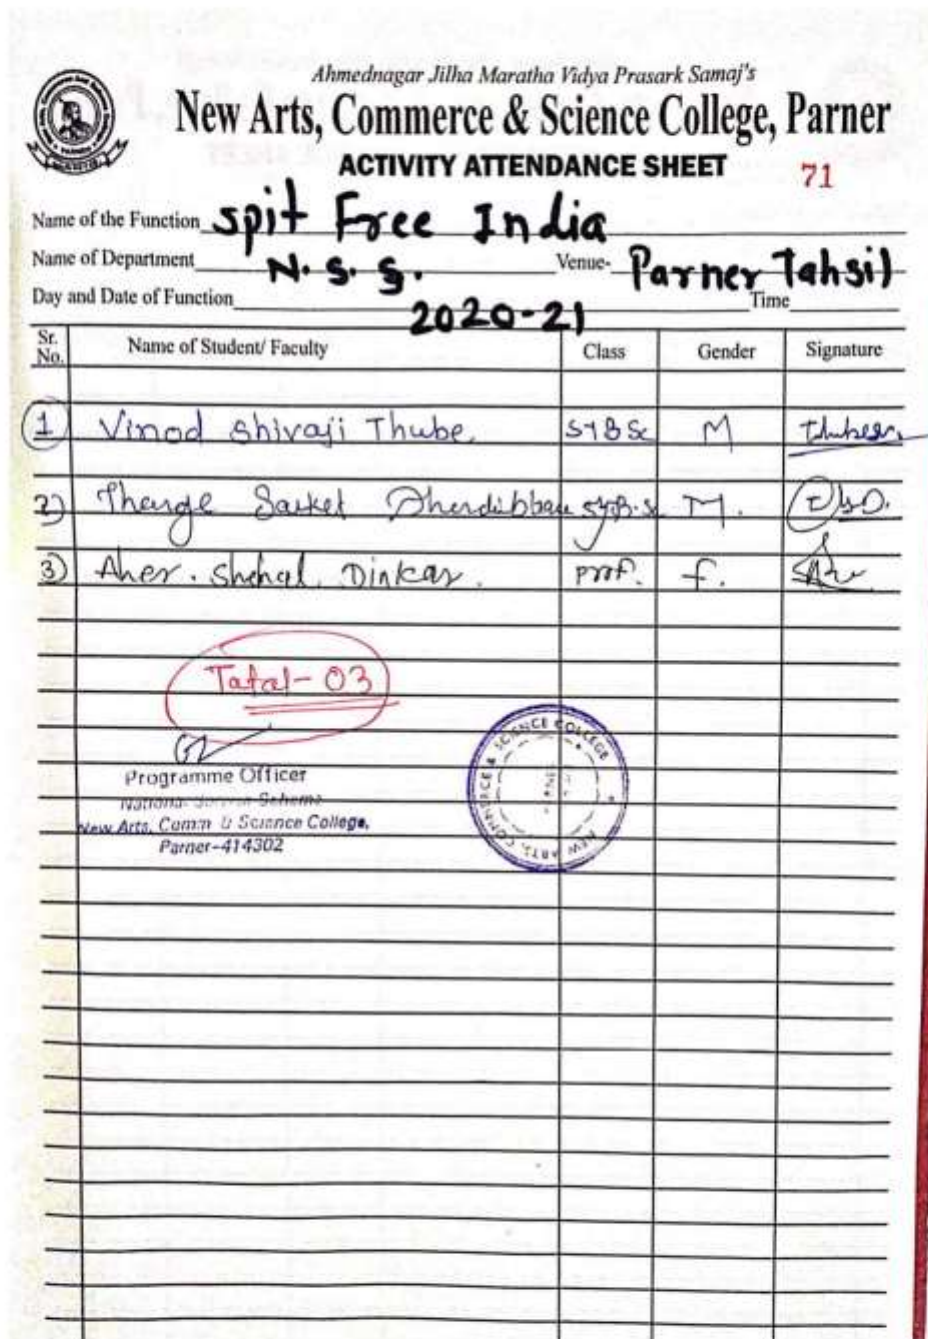 Ahmednagar Jilha Maratha Vidya Prasark Samaj's
New Arts, Commerce & Science College, Parner
ACTIVITY ATTENDANCE SHEET 71
Name of the Function Spit Free India
Name of Department N.S.S. Venue- Parner Tahsil
Day and Date of Function 2020-21 Time
Sr. No. Name of Student/ Faculty Class Gender Signature
1 Vinod Shivaji Thube. SYBSc M
2) Tharge Sarket SYB.Sc M.
3) Aher. Snehal Dinkar. Prof. f.
Total- 03
Programme Officer
National Service Scheme
New Arts, Comm & Science College,
Parner-414302
NEW ARTS, COMMERCE & SCIENCE COLLEGE